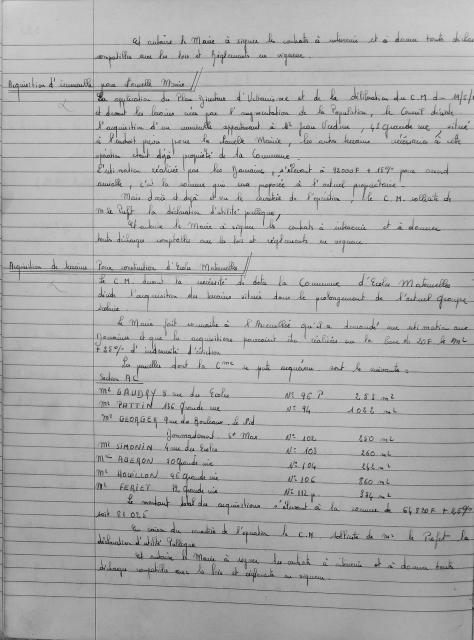 et autorise le Maire à signer les contrats à intervenir et à donner toute décharge
compatibles avec les lois et Règlements en vigueur.
Acquisition d'immeuble pour Nouvelle Mairie
En application du Plan Directeur d'Urbanisme et de la délibération du C.M du
et devant les besoins créés par l'augmentation de la Population, le Conseil décide
l'acquisition d'un immeuble appartenant à Mr Jean 48 Grande rue, situé
à l'endroit prévu pour la Nouvelle Mairie, les autres terrains nécessaires à cette
opération étant déjà propriété de la Commune.
L'estimation réalisée par les Domaines, s'élevant à 92000F + 15% pour accord
amiable, c'est la somme que sera proposée à l'actuel propriétaire.
Mais d'ores et déjà et vu le caractère de l'opération, le C.M. sollicite de
Mr le Préfet la déclaration d'utilité publique,
et autorise le Maire à signer les contrats à intervenir et à donner
toute décharge compatible avec les lois et règlements en vigueur.
Acquisition de terrains Pour construction d'Ecoles Maternelles
Le C.M. devant la nécessité de doter la Commune d'Ecoles Maternelles
décide l'acquisition du terrain située dans le prolongement de l'actuel Groupe
scolaire
Le Maire fait connaître à l'Assemblée qu'il a demandé une estimation aux
Domaines et que les acquisitions pourraient être réalisées sur la base de 20F le M2
+ 25% d'indemnité d'éviction
Les parcelles dont la Cme se porte acquéreur sont les suivantes:
Section AC
Mr GAUDRY 8 rue des Ecoles N° 96 P 288 m2
Mr POTTIN 136 Grande rue N° 94 1082 m2
Mr GEORGER 9 rue de Bordeaux, le Pid
Dommartemont, St Max N° 102 280 m2
Mr SIMONIN 4 rue des Ecoles N° 103 260 m2
Mr AGERON 80 Grande rue N° 104 242 m2
Mr HOUILLON 96 Grande rue N° 106 860 m2
Mr FERIET 112 Grande rue N° 112 p 234 m2
Le montant total des acquisitions s'élevant à la somme de 64 820F + 25%
soit 81 025
En raison du caractère de l'opération le C.M sollicite de Mr le Préfet la
déclaration d'utilité Publique
et autorise le Maire à signer les contrats à intervenir et à donner toute
décharge compatible avec les lois et règlements en vigueur.